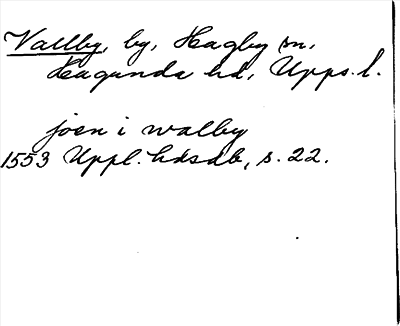 Vallby, by, Hagby sn,
Hagunda hd, Upps. l.
joen i walby
1553 Uppl. hdsdb, s. 22.